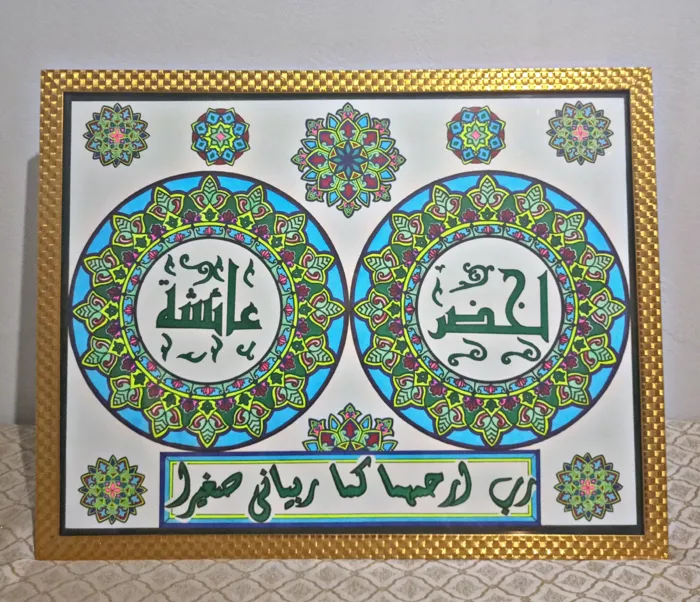 لخضر
عائشة
رب ارحمهما كما ربياني صغيرا